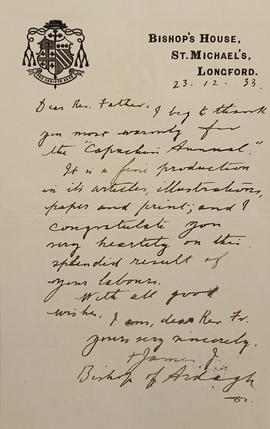 BISHOP'S HOUSE,
ST. MICHAEL'S,
LONGFORD.
23.12.33.
Dear Rev. Father, I beg to thank
you most warmly for
the "Capuchin Annual."
It is a fine production
in its articles, illustrations,
paper and print; and I
congratulate you
very heartily on this
splendid result of
your labours.
With all good
wishes, I am, dear Rev. Fr.
yours very sincerely,
+ James J.
Bishop of Ardagh